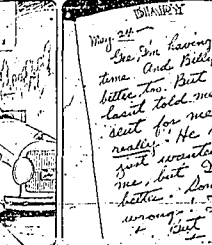 DIARY
May 24 —
Gee, I'm having
time. And Billy
better too. But
hasn't told me
sent for me
really. He
just wanted
me, but I
better. Som
wrong
But